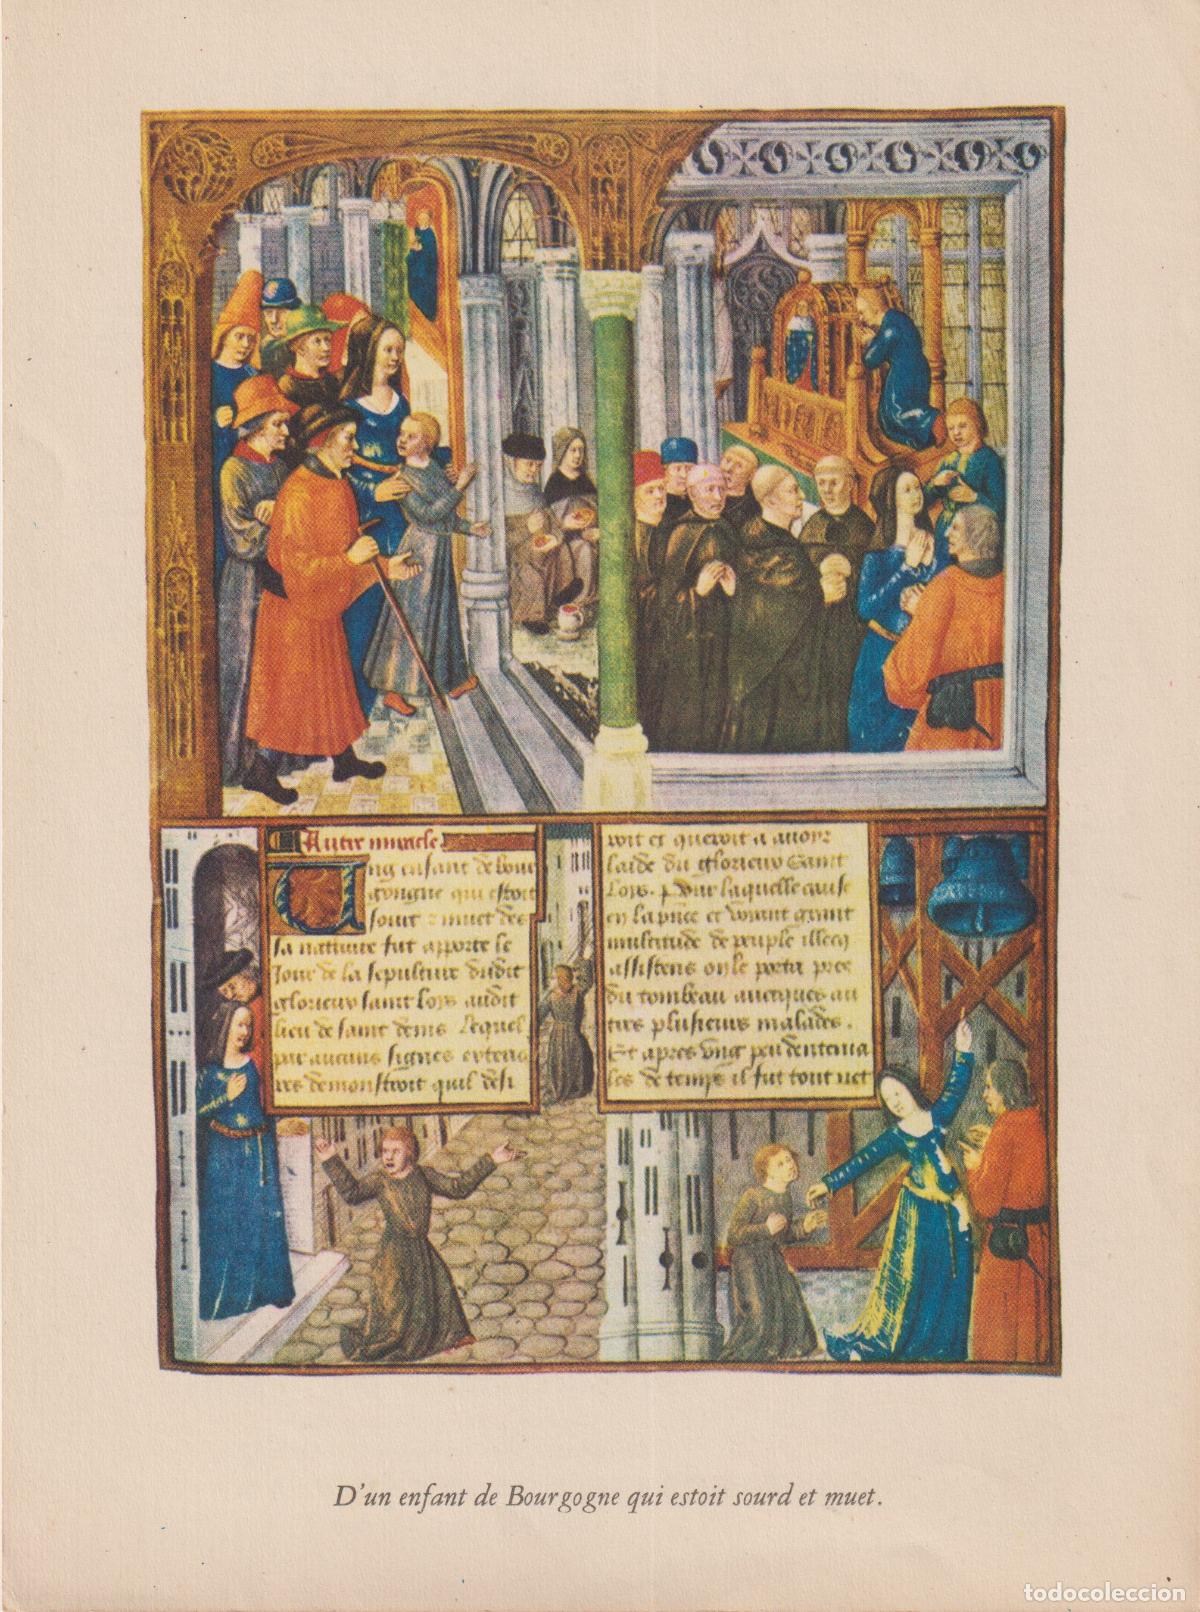 Autre miracle
Ung enfant de bour
gongne qui estoit
sourt & muet des
sa nattiure fut apporte le
Jour de la sepulture dudit
glorieux saint loys audit
lieu de saint denis Lequel
par aucuns signes exterio
res demonstroit quil desi
roit et queroit a auoyr
laide du glorieux Saint
Loys. Pour laquelle cause
en la pñce et voiant grant
multitude de peuple illecq
assistens on le porta pres
du tombeau auecques au
tres plusieurs malades.
Et apres ung peu dinterua
les de temps il fut tout net
D'un enfant de Bourgogne qui estoit sourd et muet.
todocoleccion